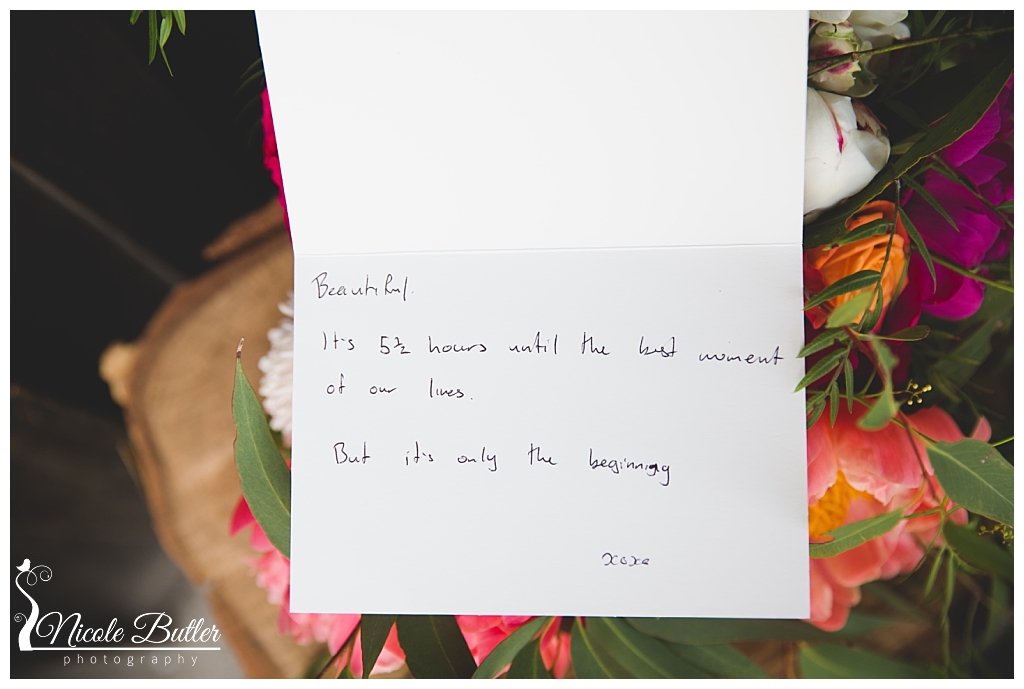 Beautiful.
It's 5½ hours until the best moment
of our lives.
But it's only the beginning
xoxo
Nicole Butler
photography